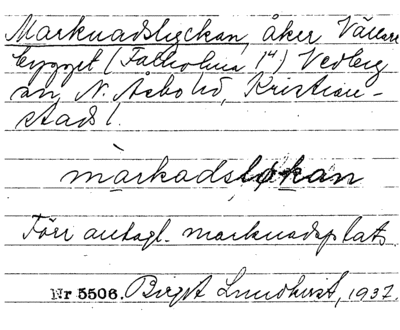 Marknadslyckan, åker Västra
bygget (Falholma 14) Vedby
sn, N. Åsbo hd, Kristian-
stads l.
màrkadsløkan
Förr antagl. marknadsplats.
Nr 5506. Birgit Lundkvist, 1937.